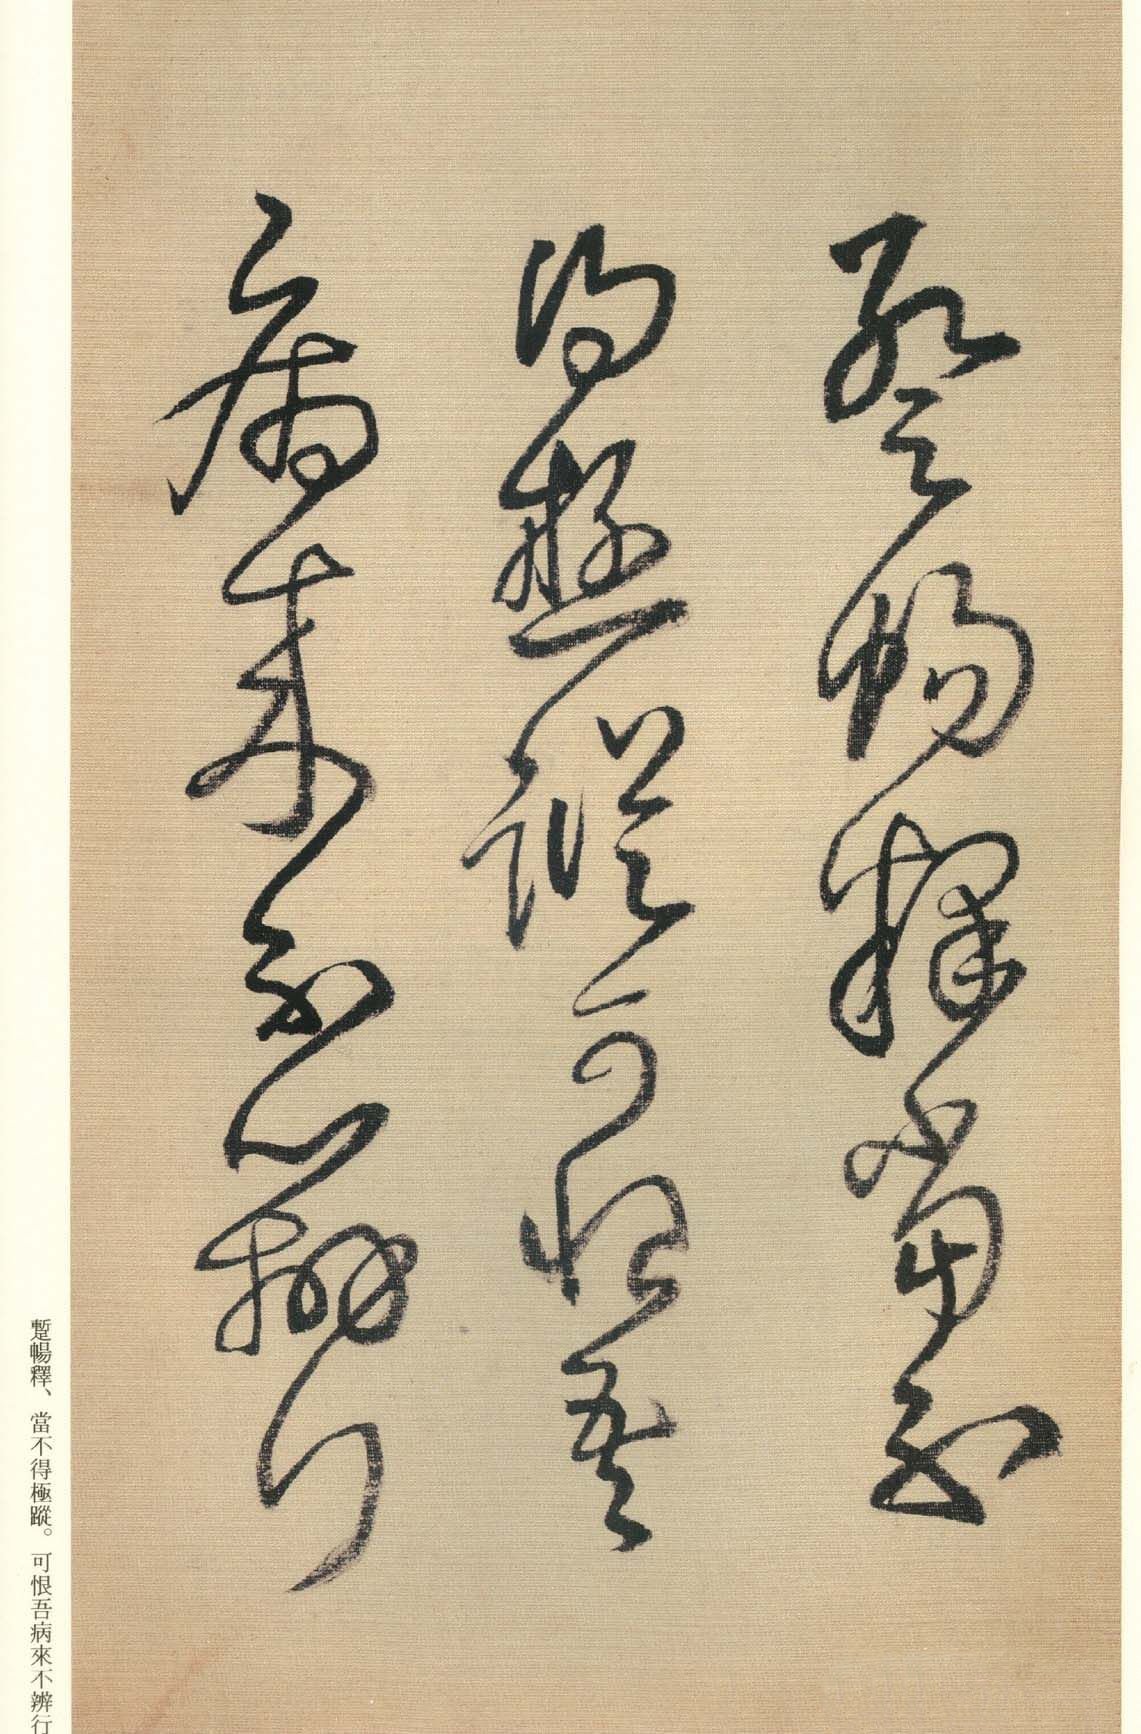 蹔暢釋當不
得極蹤可恨吾
病來不辨行
蹔暢釋、當不得極蹤。可恨吾病來不辨行